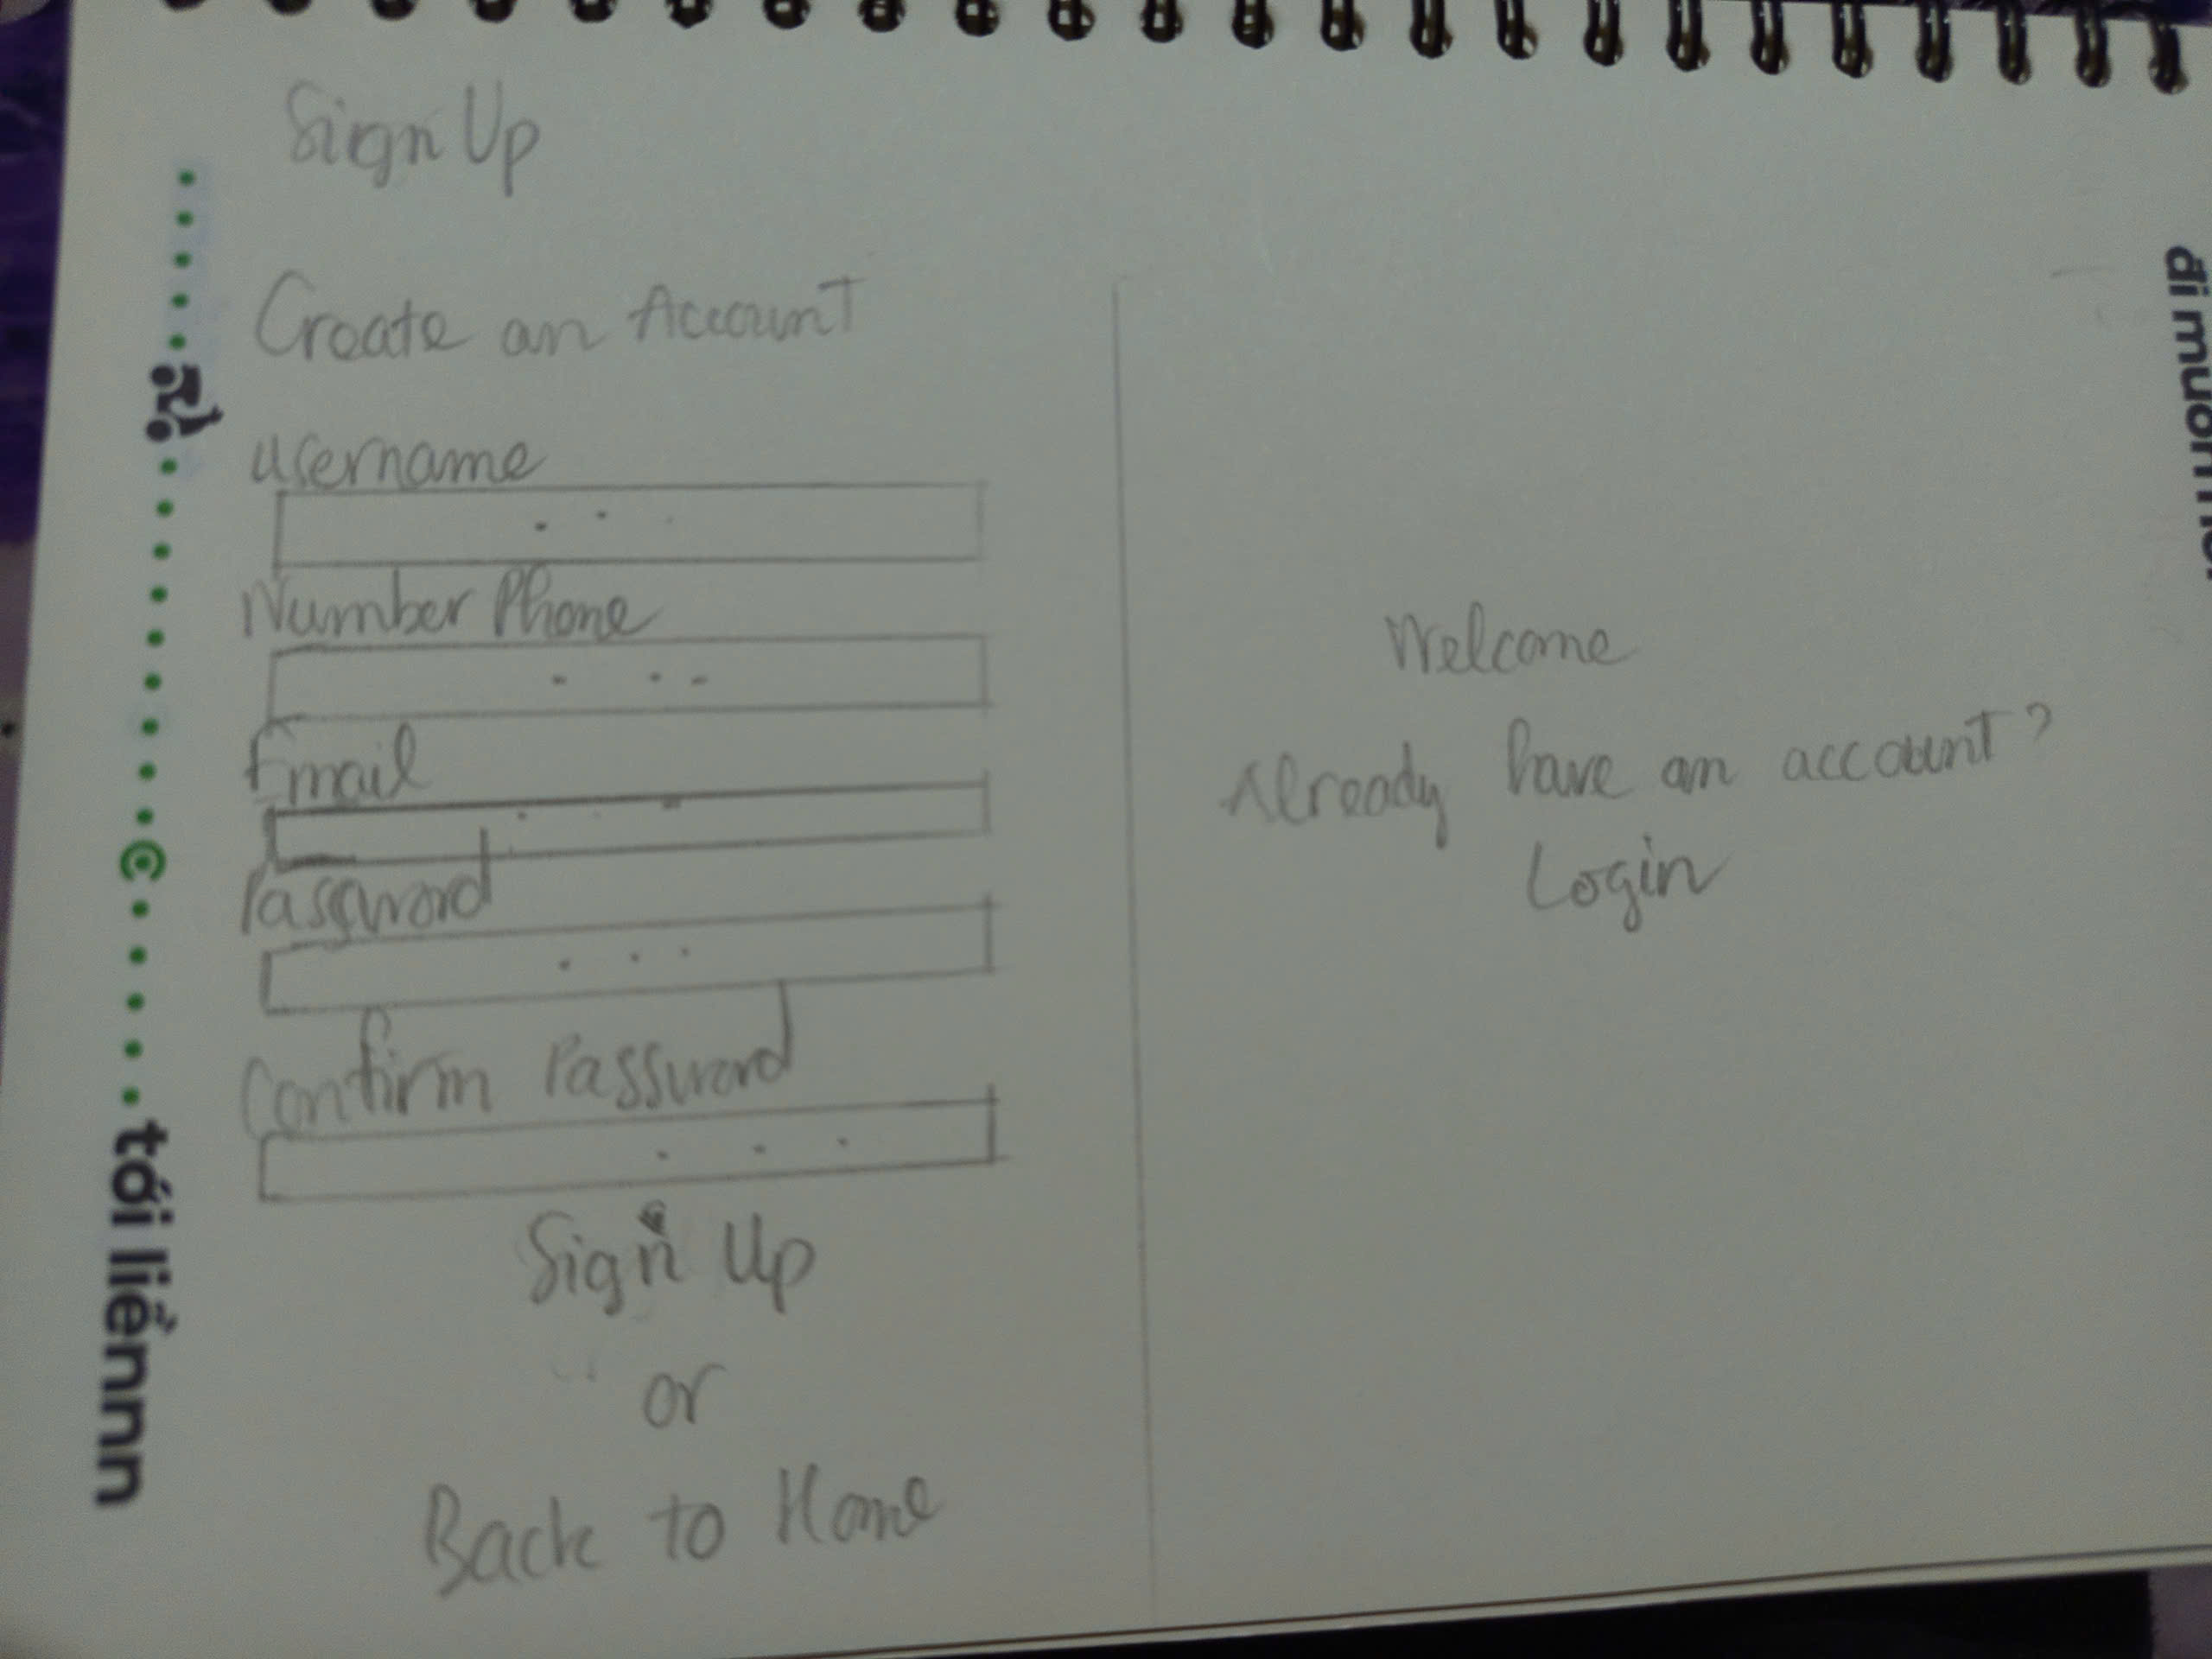 Sign Up
Create an Account
Username
Number Phone
Email
Password
Confirm Password
Sign Up
or
Back to Home
Welcome
Already have an account?
Login
tới liềnnn
đi muôn nơi